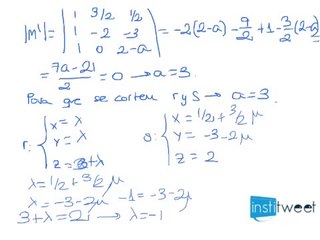 |M'| = | 1 3/2 1/2 | 1 -2 -3 | 1 0 2-a | = -2(2-a) - 9/2 + 1 - 3/2(2-a)
= 7a-21/2 = 0 → a=3.
Para que se corten r y S → a=3.
r: { x = λ y = λ z = 3+λ
s: { x = 1/2 + 3/2 μ y = -3-2μ z = 2
λ = 1/2 + 3/2 μ
λ = -3-2μ -1 = -3-2μ
3+λ = 2 → λ=-1
institweet